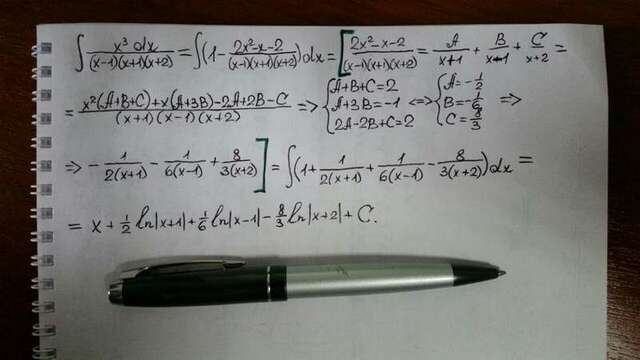 ∫ x³ dx / (x-1)(x+1)(x+2) = ∫(1 - 2x²-x-2 / (x-1)(x+1)(x+2))dx = [2x²-x-2 / (x-1)(x+1)(x+2) = A / x+1 + B / x-1 + C / x+2 =
= x²(A+B+C)+x(A+3B)-2A+2B-C / (x+1)(x-1)(x+2) => { A+B+C=2 A+3B=-1 2A-2B+C=2 <=> { A=-1/2 B=-1/6 C=8/3 =>
=> - 1 / 2(x+1) - 1 / 6(x-1) + 8 / 3(x+2) ] = ∫(1 + 1 / 2(x+1) + 1 / 6(x-1) - 8 / 3(x+2))dx =
= x + 1/2 ln|x+1| + 1/6 ln|x-1| - 8/3 ln|x+2| + C.